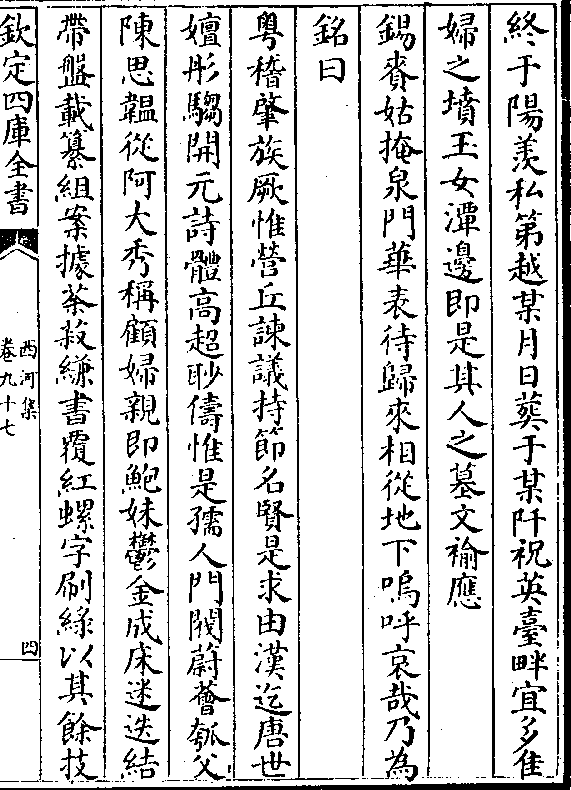 終于陽羨私第越某月日葬于某阡祝英臺畔宜多佳
婦之墳玉女潭邊即是其人之墓文褕應
錫賚姑掩泉門華表待歸來相從地下嗚呼哀哉乃為
銘曰
粤稽肇族厥惟營丘諫議持節名賢是求由漢迄唐世
嬗彤騶開元詩體高超眇儔惟是孺人門閥蔚薈瓠父
陳思韞從阿大秀稱顧婦親即鮑妹鬱金成床迷迭結
帶盤載纂組案據荼菽縑書覆紅螺字刷綠以其餘技
欽定四庫全書
西河集
卷九十七
四